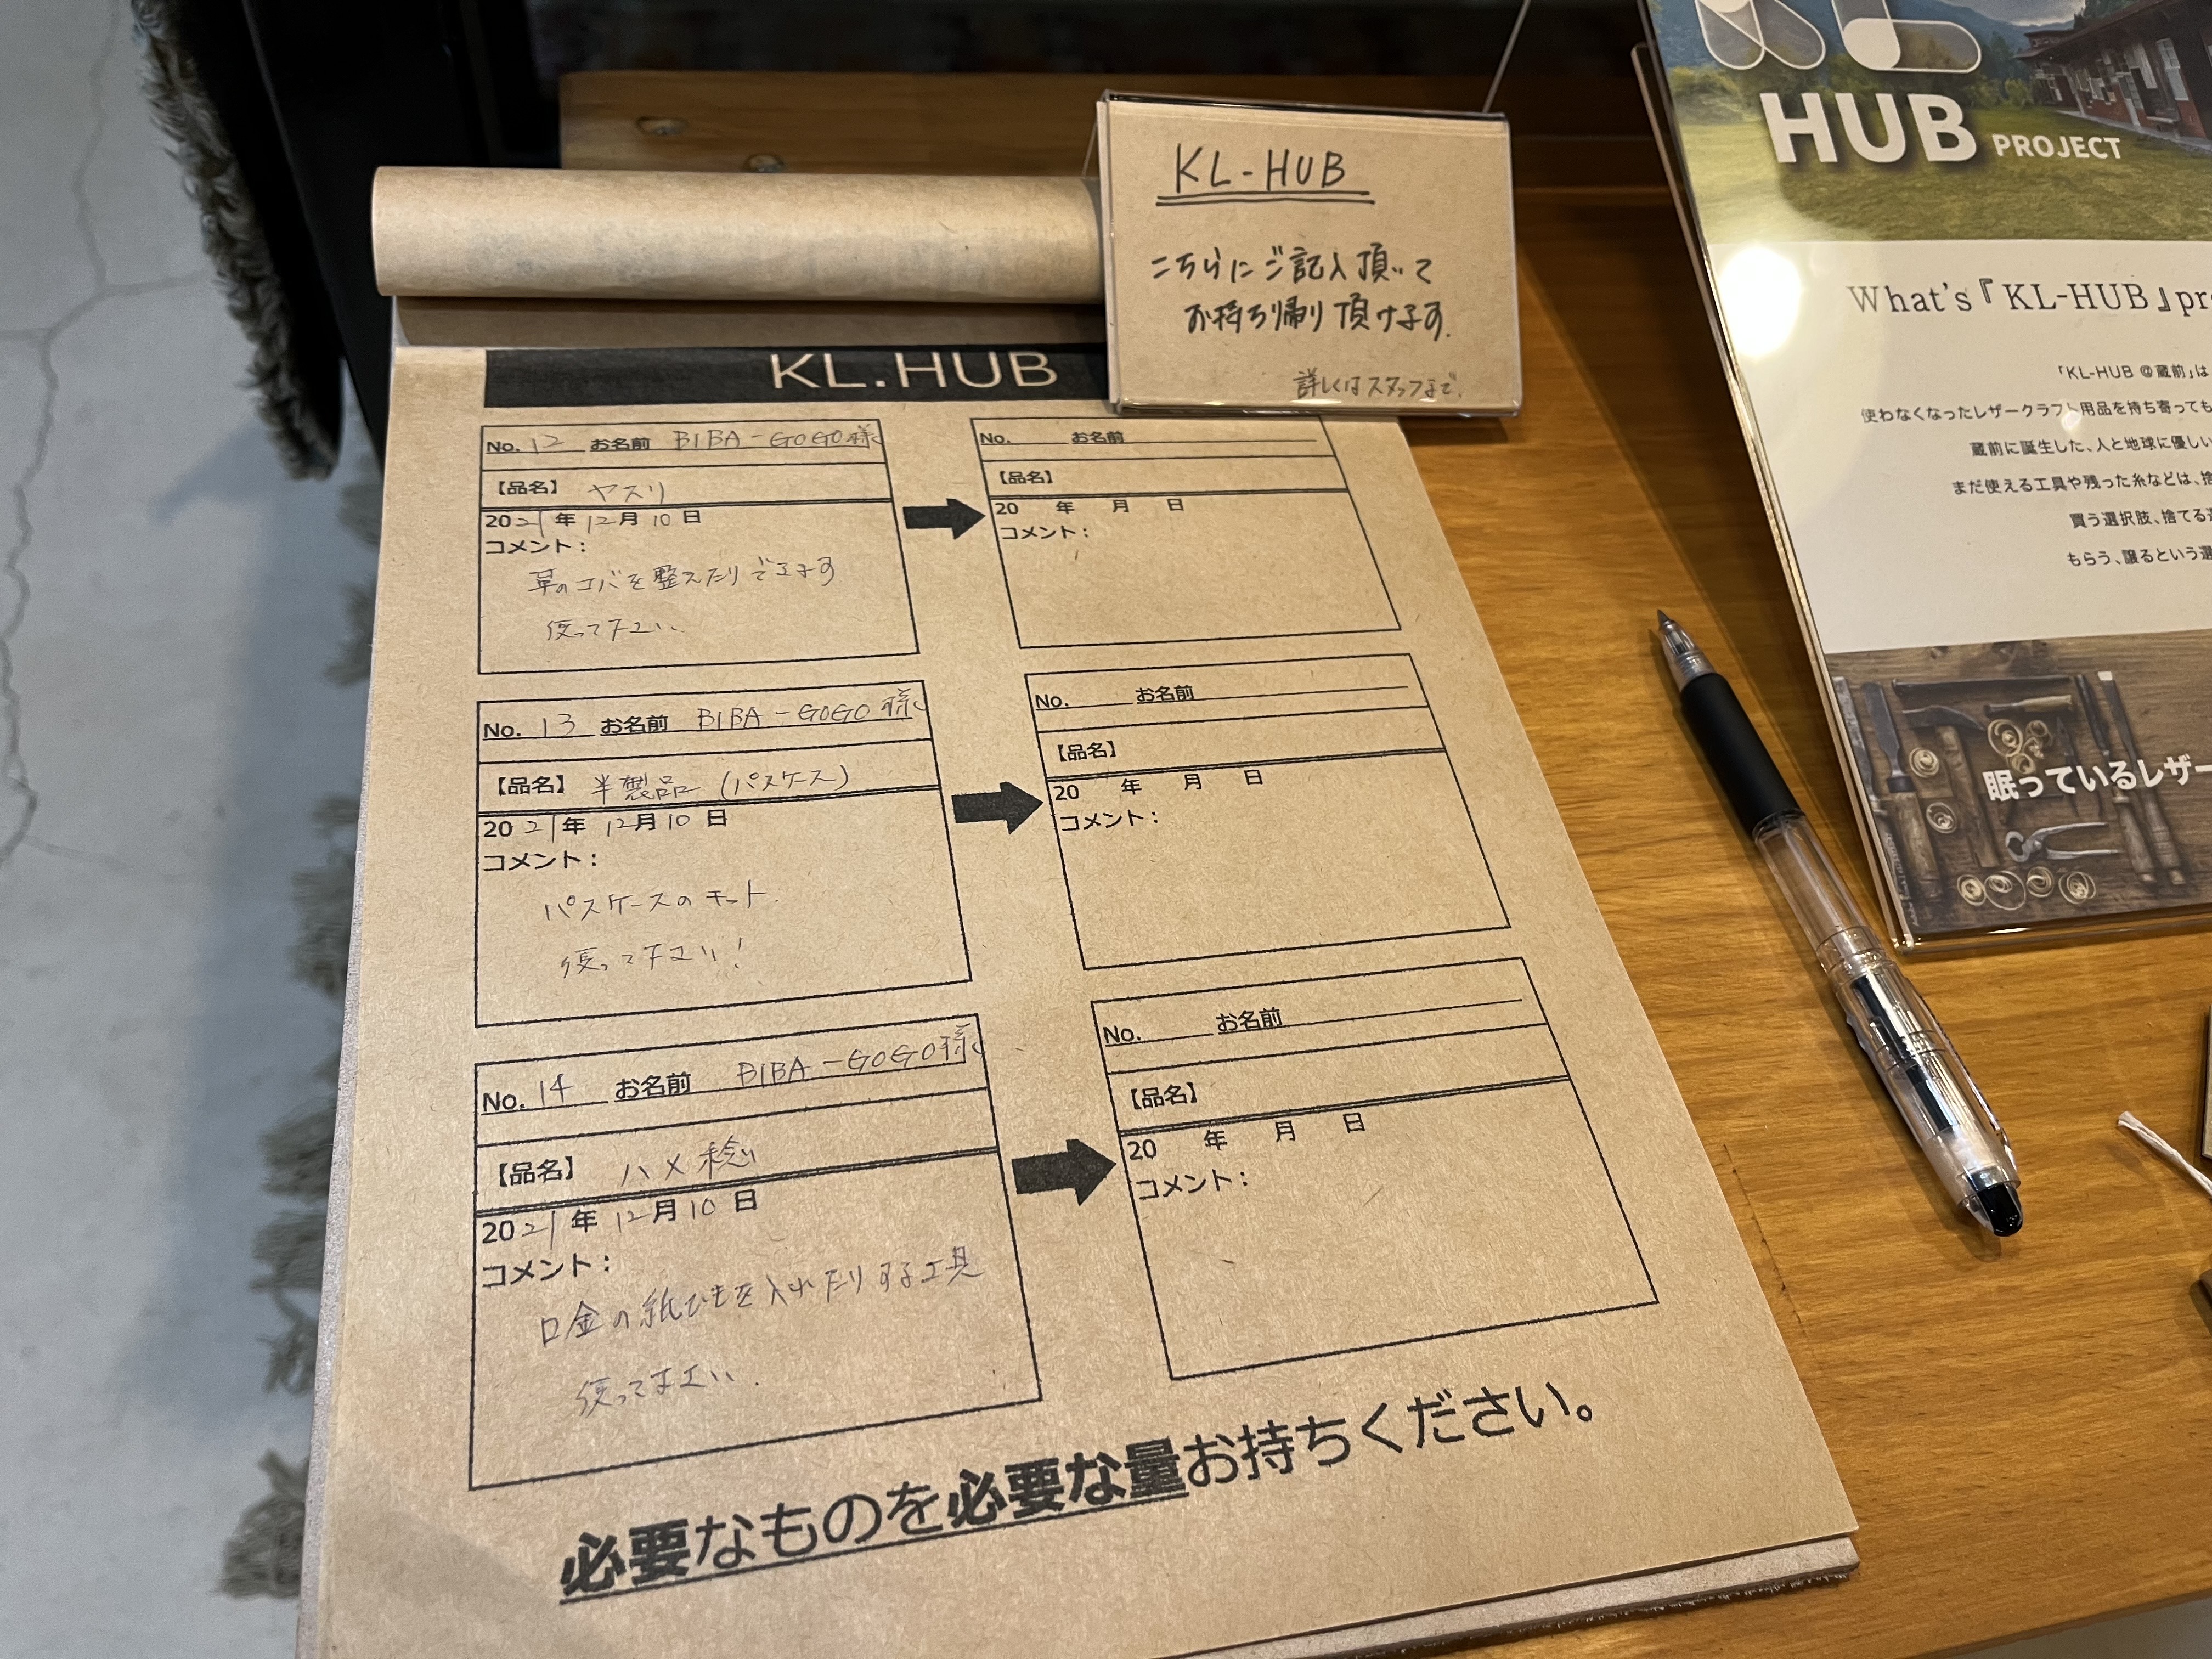 KL-HUB
こちらにご記入頂いて
お持ち帰り頂けます。
詳しくはスタッフまで。
KL.HUB
No. 12 お名前 BIBA-GOGO様
【品名】 ヤスリ
2021年12月10日
コメント:
革のコバを整えたりできます
使って下さい。
No. お名前
【品名】
20 年 月 日
コメント:
No. 13 お名前 BIBA-GOGO様
【品名】 半製品(パスケース)
2021年12月10日
コメント:
パスケースのキット.
使って下さい!
No. お名前
【品名】
20 年 月 日
コメント:
No. 14 お名前 BIBA-GOGO様
【品名】 ハメ捻
2021年12月10日
コメント:
口金の紙ひもを入れたりする工具
使って下さい.
No. お名前
【品名】
20 年 月 日
コメント:
必要なものを必要な量お持ちください。
KL
HUB PROJECT
What's『KL-HUB』pr
「KL-HUB @蔵前」は
使わなくなったレザークラフト用品を持ち寄っても
蔵前に誕生した、人と地球に優しい
まだ使える工具や残った糸などは、捨
買う選択肢、捨てる選
もらう、譲るという選
眠っているレザー